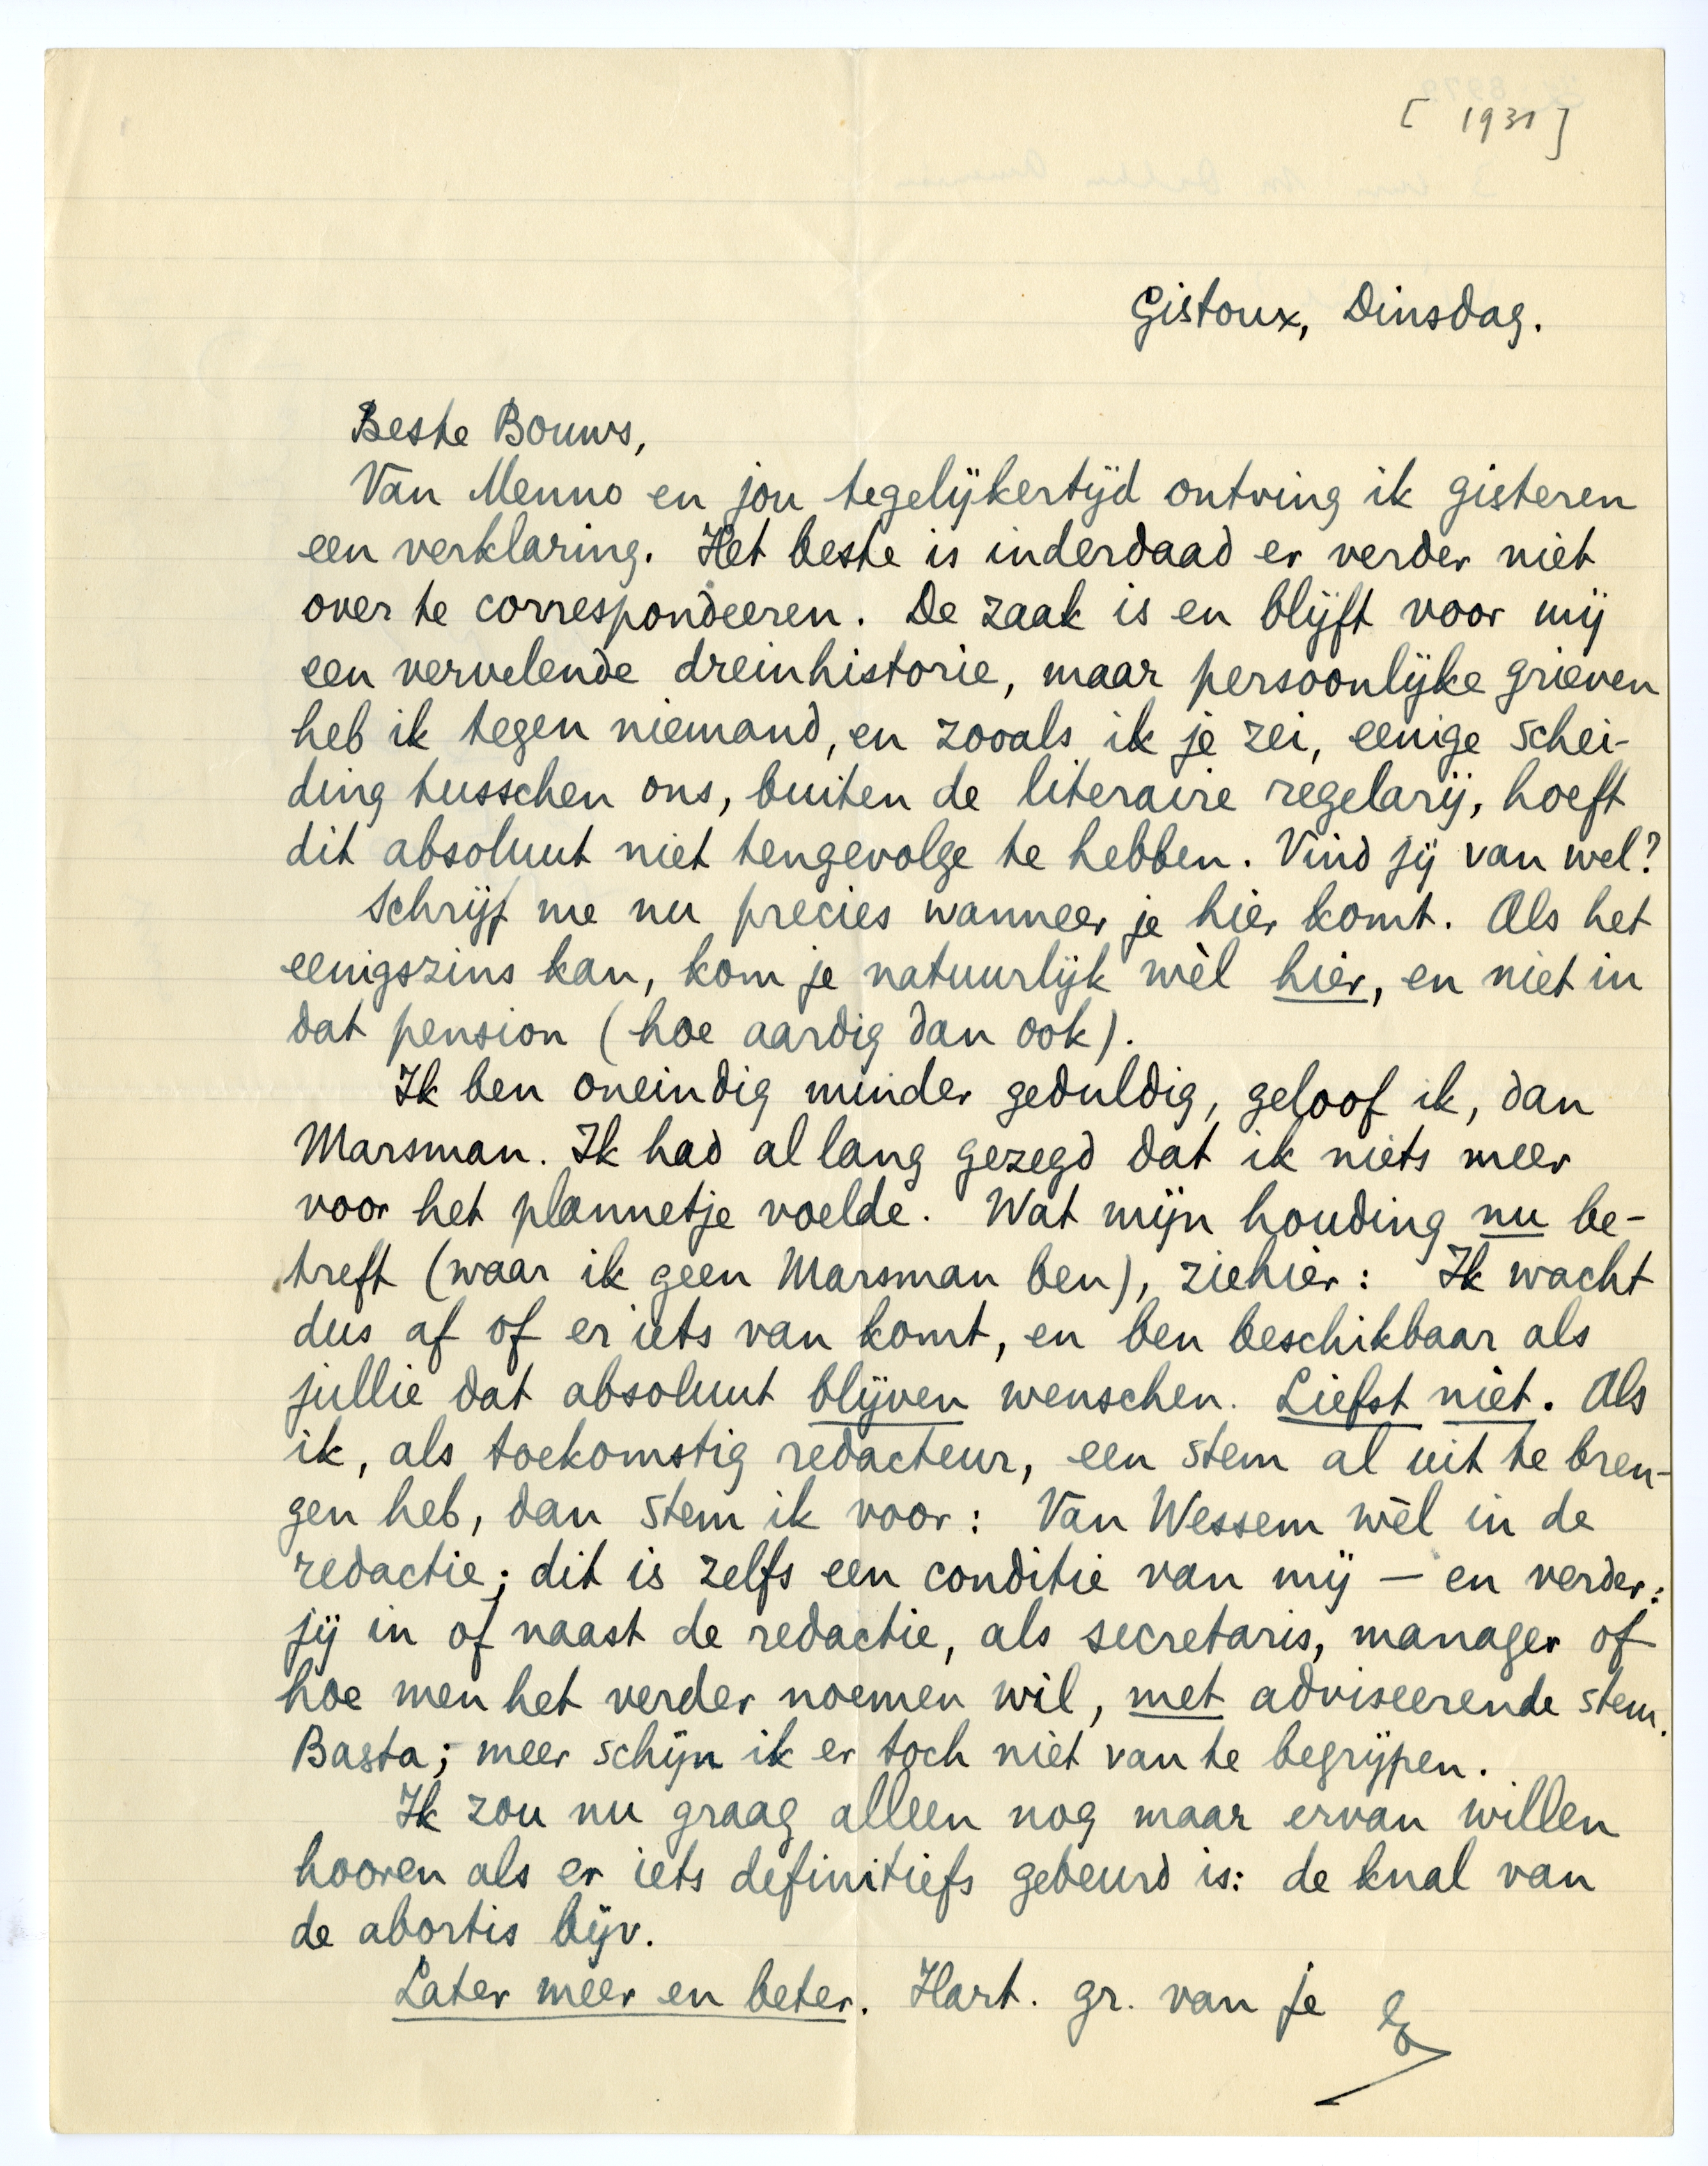 [ 1931 ]
Gistoux, Dinsdag.
Beste Bouws,
Van Menno en jou tegelijkertijd ontving ik gisteren
een verklaring. Het beste is inderdaad er verder niet
over te correspondeeren. De zaak is en blijft voor mij
een vervelende dreinhistorie, maar persoonlijke grieven
heb ik tegen niemand, en zooals ik je zei, eenige schei-
ding tusschen ons, buiten de literaire regelarij, hoeft
dit absoluut niet tengevolge te hebben. Vind jij van wel?
Schrijf me nu precies wanneer je hier komt. Als het
eenigszins kan, kom je natuurlijk wèl hier, en niet in
dat pension (hoe aardig dan ook).
Ik ben oneindig minder geduldig, geloof ik, dan
Marsman. Ik had al lang gezegd dat ik niets meer
voor het plannetje voelde. Wat mijn houding nu be-
treft (waar ik geen Marsman ben), ziehier: Ik wacht
dus af of er iets van komt, en ben beschikbaar als
jullie dat absoluut blijven wenschen. Liefst niet. Als
ik, als toekomstig redacteur, een stem al uit te bren-
gen heb, dan stem ik voor: Van Wessem wèl in de
redactie; dit is zelfs een conditie van mij — en verder:
jij in of naast de redactie, als secretaris, manager of
hoe men het verder noemen wil, met adviseerende stem.
Basta; meer schijn ik er toch niet van te begrijpen.
Ik zou nu graag alleen nog maar ervan willen
hooren als er iets definitiefs gebeurd is: de knal van
de abortis bijv.
Later meer en beter. Hart. gr. van je